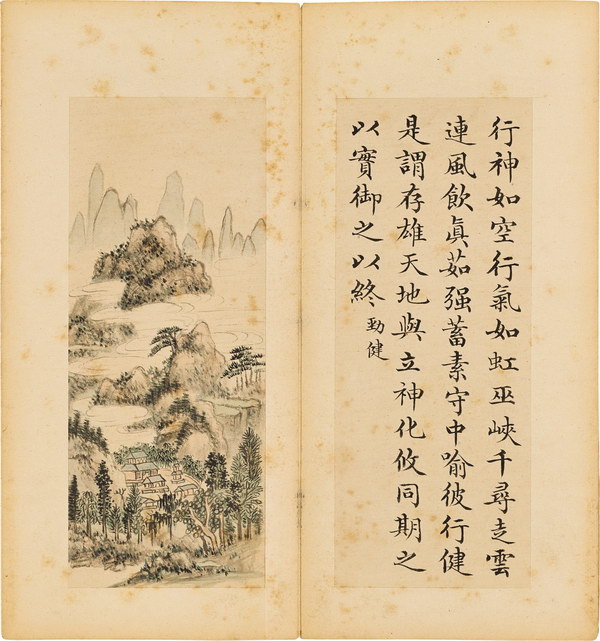 行神如空行氣如虹巫峽千尋走雲
連風飲眞茹强蓄素守中喻彼行健
是謂存雄天地與立神化攸同期之
以實御之以終 勁健